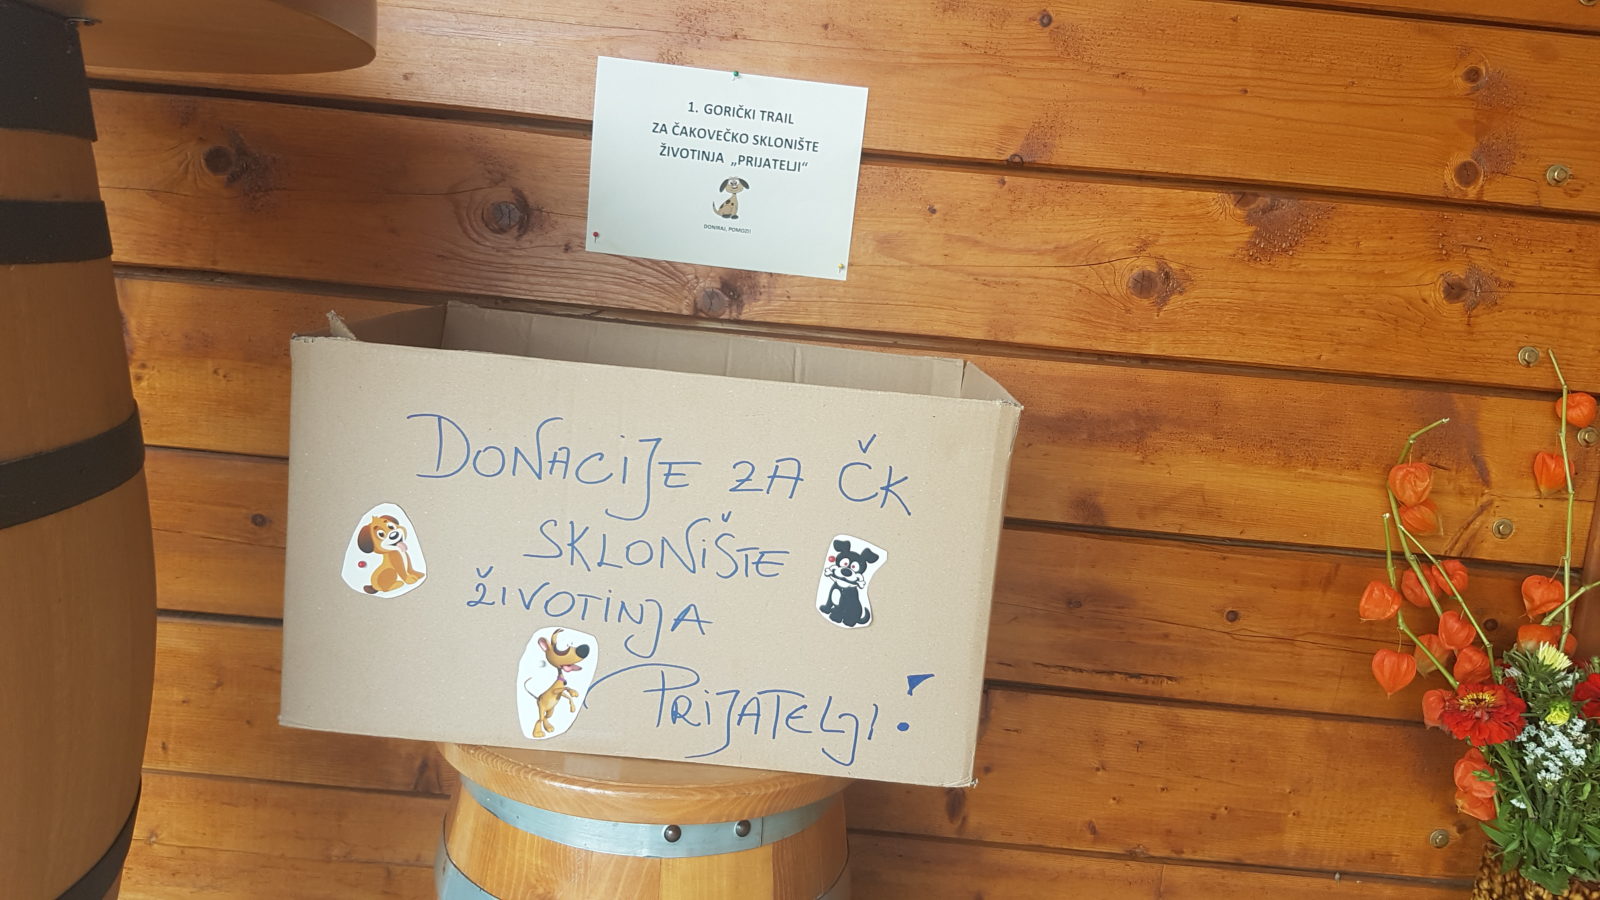 1. GORIČKI TRAIL
ZA ČAKOVEČKO SKLONIŠTE
ŽIVOTINJA „PRIJATELJI“
DONIRAJ, POMOZI!
DONACIJE ZA ČK
SKLONIŠTE
ŽIVOTINJA
PRIJATELJI!